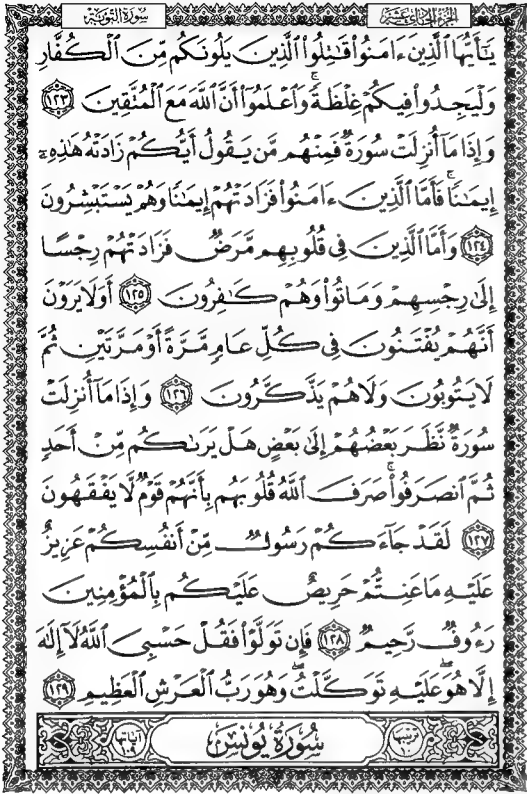 الجزء الحادي عشر
سورة التوبة
يَٰٓأَيُّهَا ٱلَّذِينَ ءَامَنُوا۟ قَٰتِلُوا۟ ٱلَّذِينَ يَلُونَكُم مِّنَ ٱلْكُفَّارِ
وَلْيَجِدُوا۟ فِيكُمْ غِلْظَةً ۚ وَٱعْلَمُوٓا۟ أَنَّ ٱللَّهَ مَعَ ٱلْمُتَّقِينَ ١٢٣
وَإِذَا مَآ أُنزِلَتْ سُورَةٌ فَمِنْهُم مَّن يَقُولُ أَيُّكُمْ زَادَتْهُ هَٰذِهِۦٓ
إِيمَٰنًا ۚ فَأَمَّا ٱلَّذِينَ ءَامَنُوا۟ فَزَادَتْهُمْ إِيمَٰنًا وَهُمْ يَسْتَبْشِرُونَ
١٢٤ وَأَمَّا ٱلَّذِينَ فِى قُلُوبِهِم مَّرَضٌ فَزَادَتْهُمْ رِجْسًا
إِلَىٰ رِجْسِهِمْ وَمَاتُوا۟ وَهُمْ كَٰفِرُونَ ١٢٥ أَوَلَا يَرَوْنَ
أَنَّهُمْ يُفْتَنُونَ فِى كُلِّ عَامٍ مَّرَّةً أَوْ مَرَّتَيْنِ ثُمَّ
لَا يَتُوبُونَ وَلَا هُمْ يَذَّكَّرُونَ ١٢٦ وَإِذَا مَآ أُنزِلَتْ
سُورَةٌ نَّظَرَ بَعْضُهُمْ إِلَىٰ بَعْضٍ هَلْ يَرَىٰكُم مِّنْ أَحَدٍ
ثُمَّ ٱنصَرَفُوا۟ ۚ صَرَفَ ٱللَّهُ قُلُوبَهُم بِأَنَّهُمْ قَوْمٌ لَّا يَفْقَهُونَ
١٢٧ لَقَدْ جَآءَكُمْ رَسُولٌ مِّنْ أَنفُسِكُمْ عَزِيزٌ
عَلَيْهِ مَا عَنِتُّمْ حَرِيصٌ عَلَيْكُم بِٱلْمُؤْمِنِينَ
رَءُوفٌ رَّحِيمٌ ١٢٨ فَإِن تَوَلَّوْا۟ فَقُلْ حَسْبِىَ ٱللَّهُ لَآ إِلَٰهَ
إِلَّا هُوَ ۖ عَلَيْهِ تَوَكَّلْتُ ۖ وَهُوَ رَبُّ ٱلْعَرْشِ ٱلْعَظِيمِ ١٢٩
ترتيبها
سُورَةُ يُونُسَ
آياتها ١٠٩